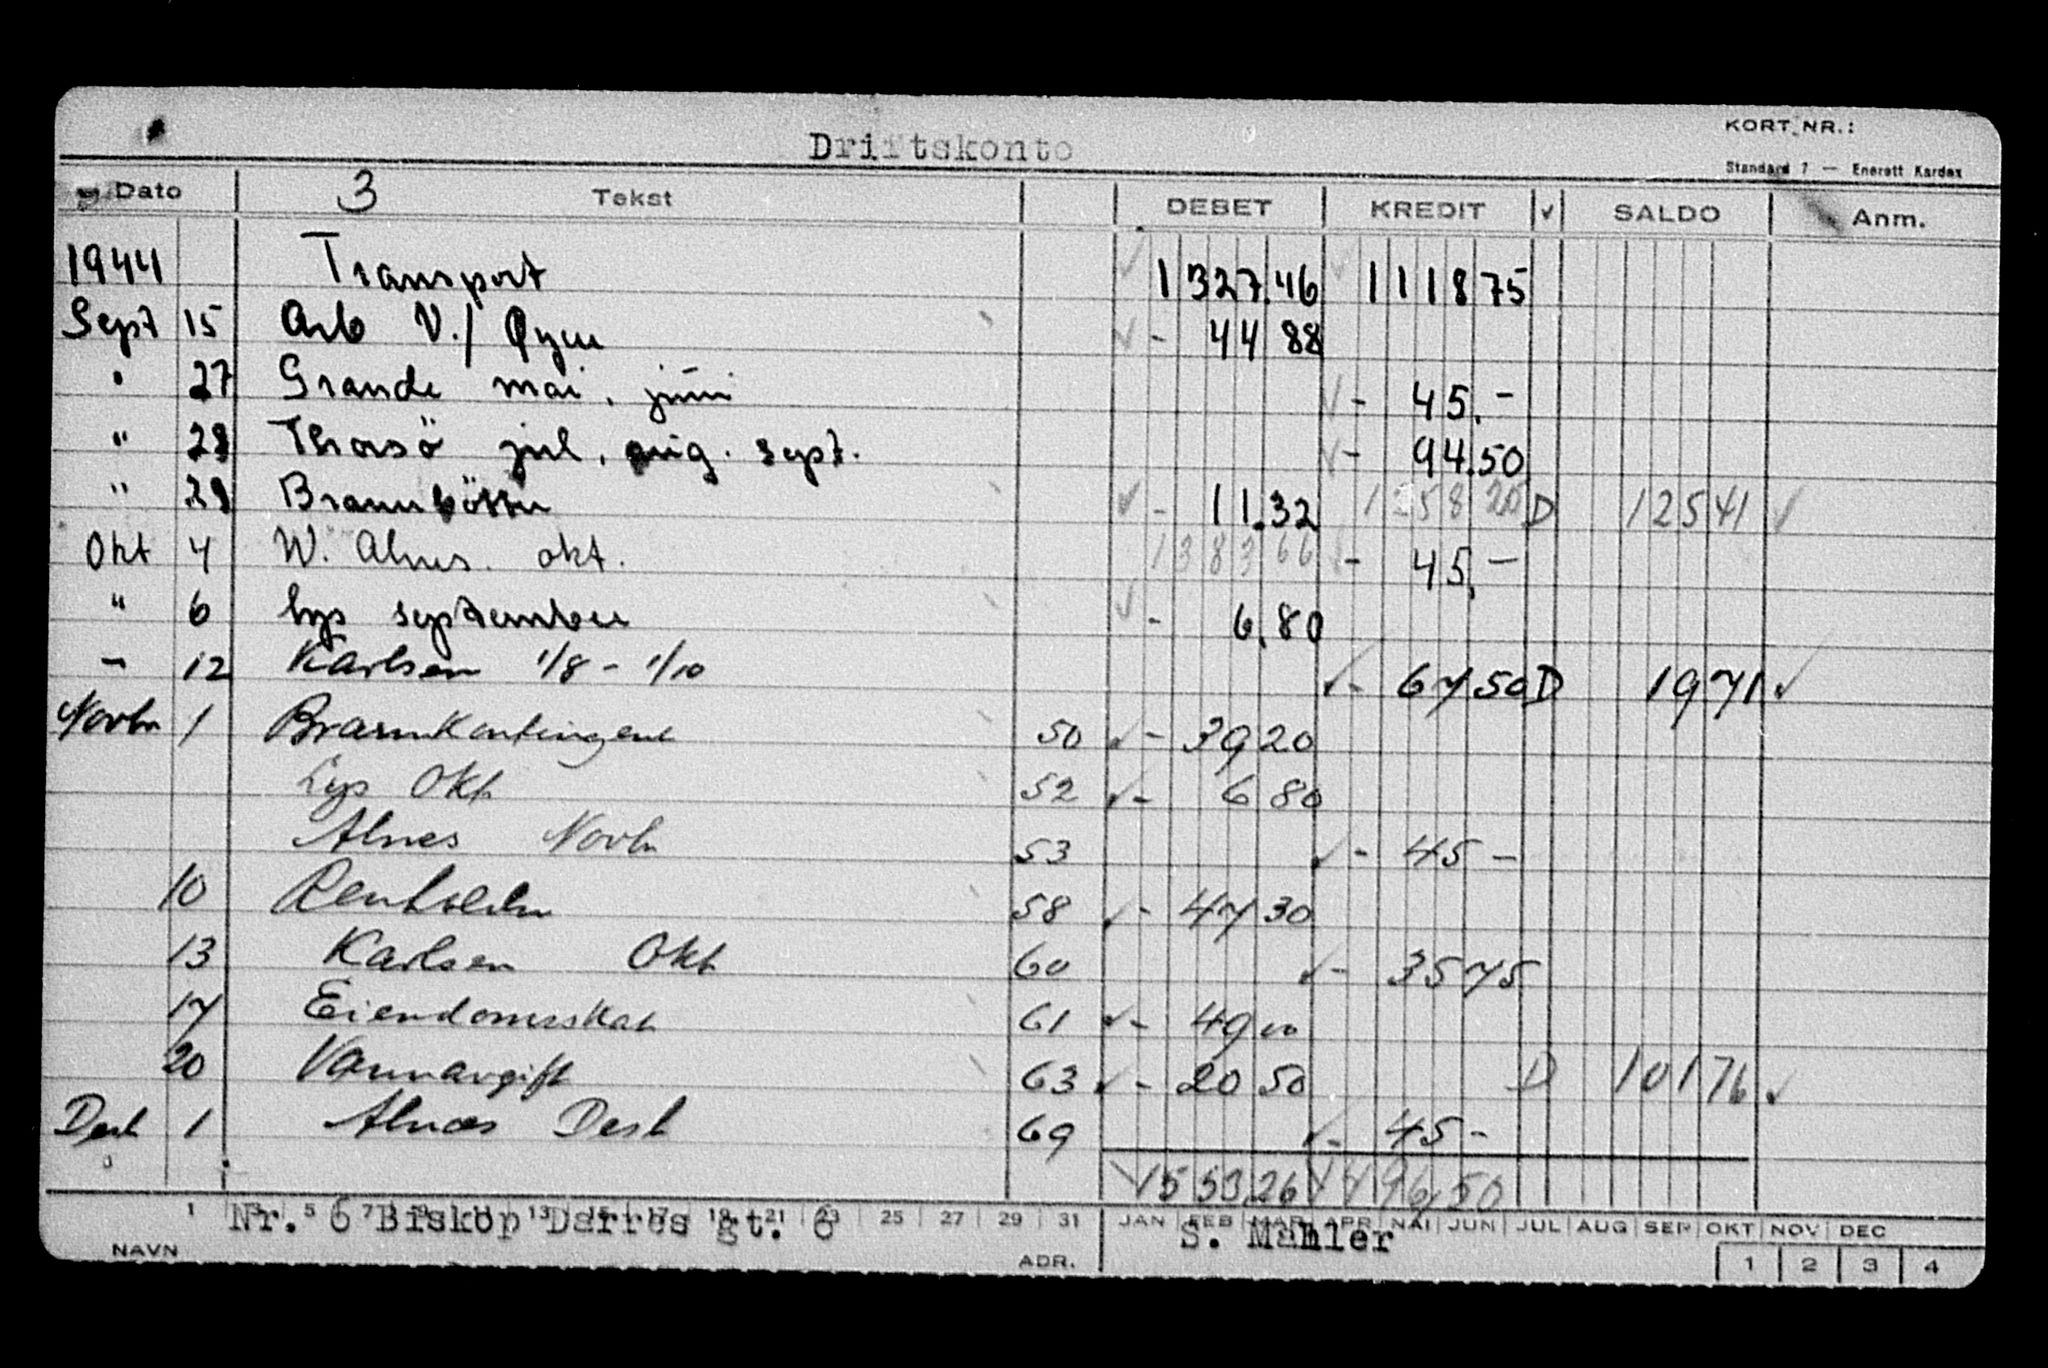 Driftskonto
KORT NR.:
Standard 7 — Enerett Kardex
Dato 3 Tekst DEBET KREDIT √ SALDO Anm.
1944 Transport 1327.46 1118 75
Sept 15 Arb V./ Øyen - 44 88
" 27 Grande mai, juni - 45.-
" 28 Thorsö jul, aug. sept. - 94.50
" 28 Brannbötter - 11.32 1258 25 D 125 41
Okt 4 W. Alnes. okt. 1383 66 - 45,-
" 6 Lys september - 6.80
" 12 Karlsen 1/8 - 1/10 - 67 50 D 19 71
Novbr 1 Brannkontingent 50 - 39 20
Lys Okt 52 - 6 80
Alnes Novbr 53 - 45 -
10 Renholder 58 - 47 30
13 Karlsen Okt 60 - 35 75
17 Eiendomsskat 61 - 49 00
20 Vannavgift 63 - 20 50 D 101 76
Desb 1 Alnæs Desb 69 - 45 -
1553,26 1496,50
1 3 5 7 9 11 13 15 17 19 21 23 25 27 29 31 JAN FEB MAR APR MAI JUN JUL AUG SEP OKT NOV DEC
Nr. 6 Biskop Darres gt. 6 S. Mahler
NAVN ADR. 1 2 3 4